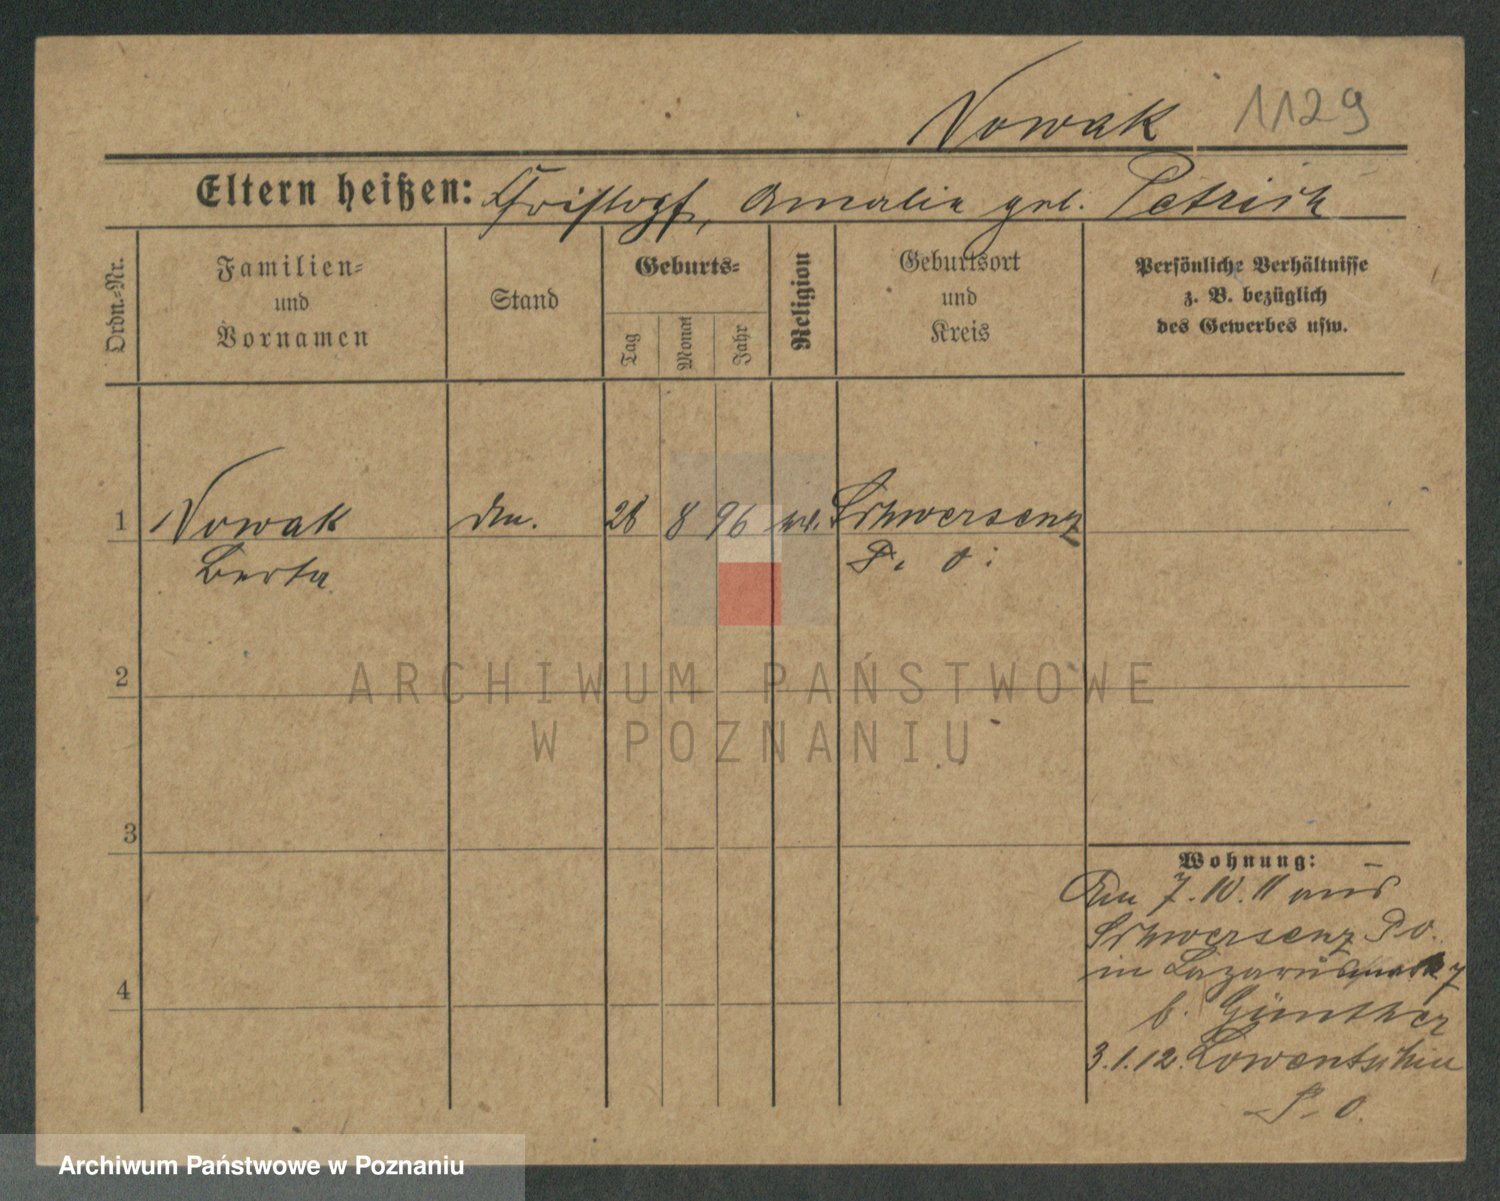 Nowak 1129
Eltern heißen: Christopf, Amalie geb. Petrich
Ordn.-Nr.
Familien- und Vornamen
Stand
Geburts-
Tag
Monat
Jahr
Religion
Geburtsort und Kreis
Persönliche Verhältnisse
z. B. bezüglich
des Gewerbes usw.
1 Nowak 28 8 96 Schwersenz
Berta P. O.
2
3
4
Wohnung:
7.10.11 aus
Schwersenz P. O.
in Lazarus 7
b. Günther
3.1.12. Lowentschin
P. O.
ARCHIWUM PAŃSTWOWE
W POZNANIU
Archiwum Państwowe w Poznaniu